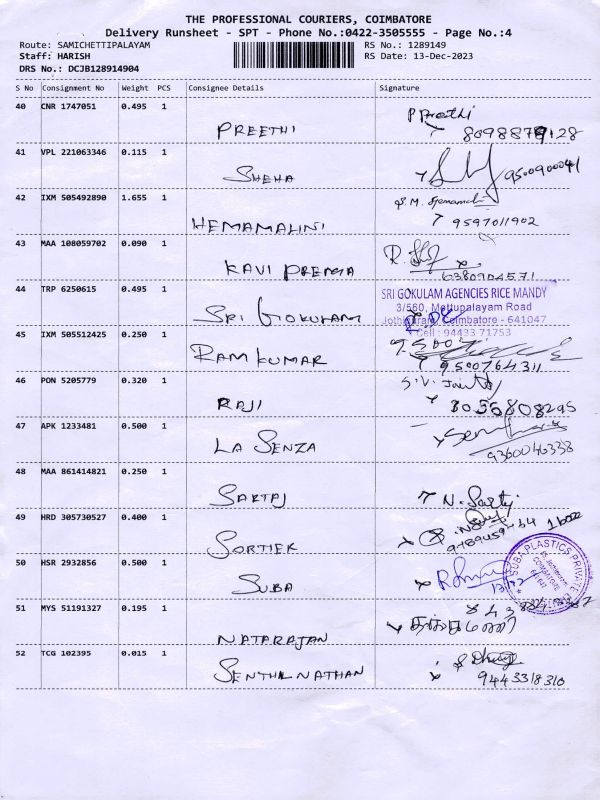 THE PROFESSIONAL COURIERS, COIMBATORE
Delivery Runsheet - SPT - Phone No.:0422-3505555 - Page No.:4
Route: SAMICHETTIPALAYAM RS No.: 1289149
Staff: HARISH RS Date: 13-Dec-2023
DRS No.: DCJB128914904
S No Consignment No Weight PCS Consignee Details Signature
40 CNR 1747051 0.495 1
PREETHI P Preethi
8098879128
41 VPL 221063346 0.115 1
SNEHA 9500900041
42 IXM 505492890 1.655 1
HEMAMALINI 9597011902
43 MAA 108059702 0.090 1
KAVI PRERNA 6380904571
44 TRP 6250615 0.495 1
SRI GOKULAM
SRI GOKULAM AGENCIES RICE MANDY
3/560, Mettupalayam Road
Coimbatore - 641047
Cell : 94433 71753
45 IXM 505512425 0.250 1
RAM KUMAR 9500764311
46 PON 5205779 0.320 1
RAJI
47 APK 1233481 0.500 1
LA SENZA 9360046338
48 MAA 861414821 0.250 1
SARTAJ N. Sartj
49 HRD 305730527 0.400 1
SORTIEK
50 HSR 2932856 0.500 1
SUBA
SUBA PLASTICS PRIVATE
COIMBATORE
51 MYS 51191327 0.195 1
NATARAJAN
52 TCG 102395 0.015 1
SENTHILNATHAN 9443318310